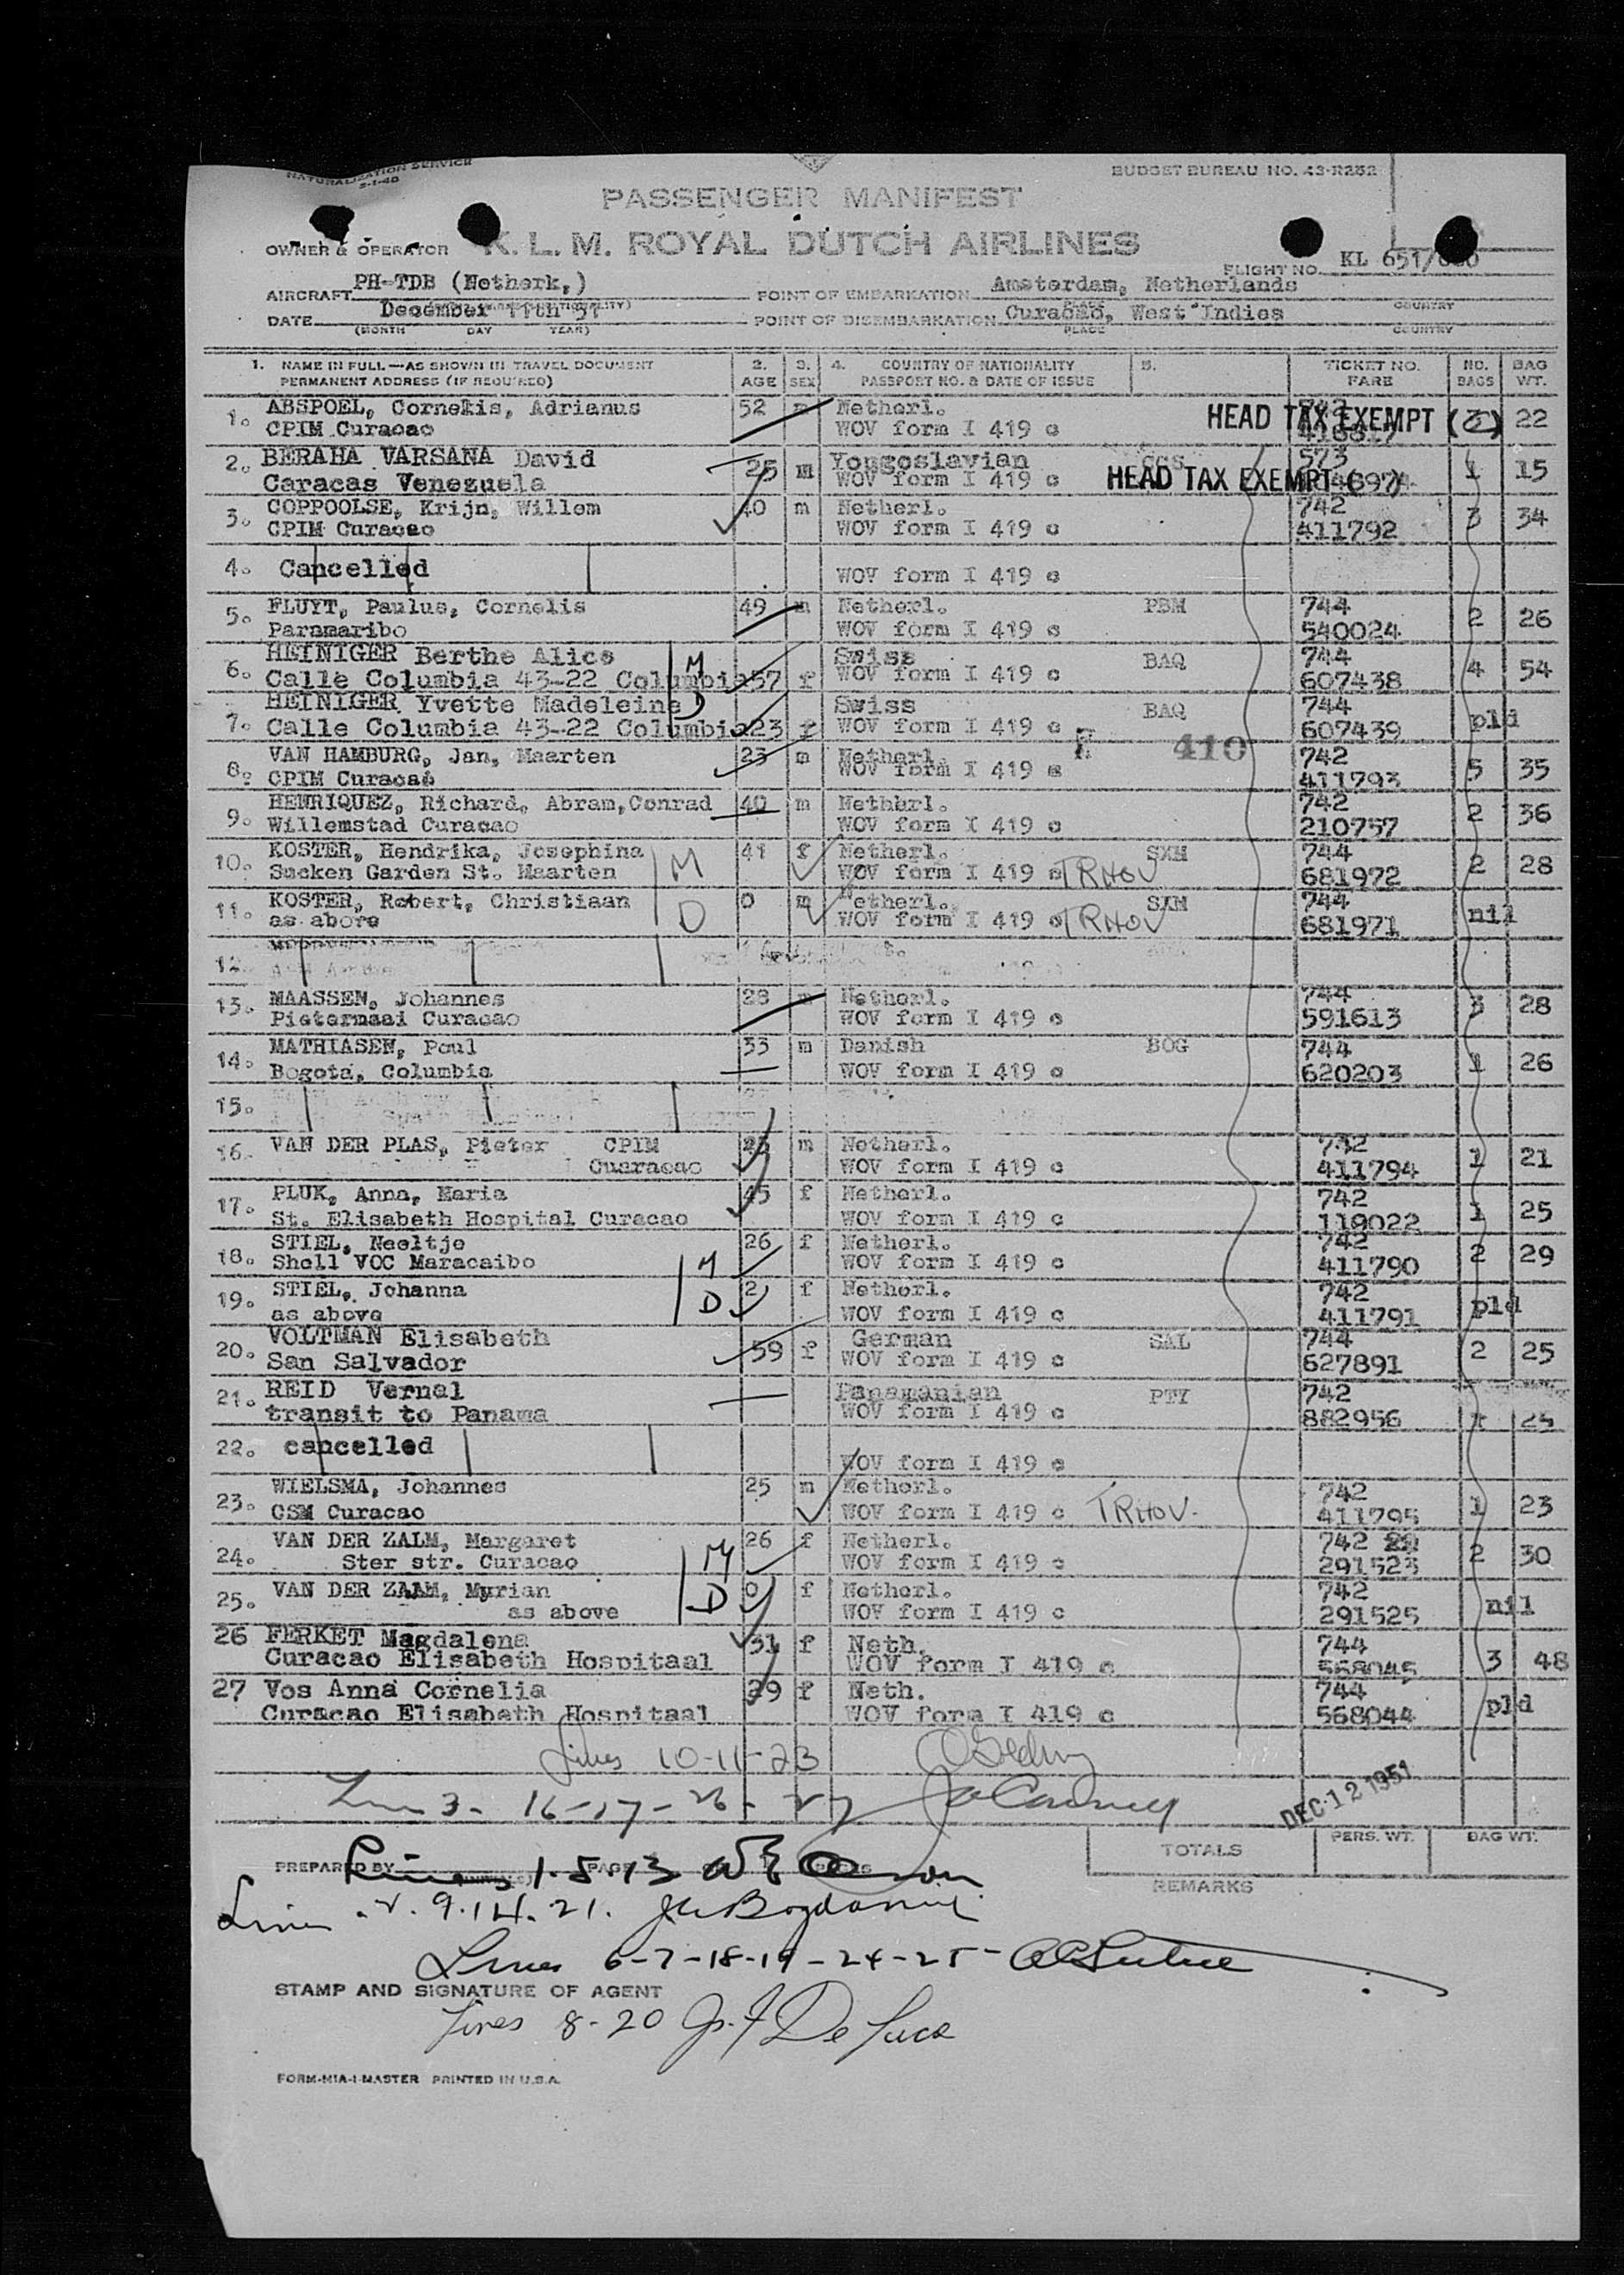 NATURALIZATION SERVICE
2-1-48
BUDGET BUREAU NO. 43-R232
PASSENGER MANIFEST
OWNER & OPERATOR K. L. M. ROYAL DUTCH AIRLINES
FLIGHT NO. KL 651/
AIRCRAFT PH-TDB (Netherk,) POINT OF EMBARKATION Amsterdam, Netherlands
PLACE COUNTRY
DATE December 11th 51 POINT OF DISEMBARKATION Curacao, West Indies
(MONTH DAY YEAR) PLACE COUNTRY
1. NAME IN FULL—AS SHOWN IN TRAVEL DOCUMENT 2. 3. 4. COUNTRY OF NATIONALITY 5. TICKET NO. NO. BAG
PERMANENT ADDRESS (IF REQUIRED) AGE SEX PASSPORT NO. & DATE OF ISSUE FARE BAGS WT.
1. ABSPOEL, Cornelis, Adrianus 52 m Netherl. HEAD TAX EXEMPT ( ) 742 3 22
CPIM Curacao WOV form I 419 c
2. BERAHA VARSANA David 25 m Yougoslavian CCS 573 1 15
Caracas Venezuela WOV form I 419 c HEAD TAX EXEMPT ( )
3. COPPOOLSE, Krijn, Willem 40 m Netherl. 742 3 34
CPIM Curacao WOV form I 419 c 411792
4. Cancelled WOV form I 419 c
5. FLUYT, Paulus, Cornelis 49 m Netherl. PBM 744 2 26
Paramaribo WOV form I 419 c 540024
6. HEINIGER Berthe Alice M Swiss BAQ 744 4 54
Calle Columbia 43-22 Columbia 57 f WOV form I 419 c 607438
7. HEINIGER Yvette Madeleine D Swiss BAQ 744 pld
Calle Columbia 43-22 Columbia 23 f WOV form I 419 c 607439
410
8. VAN HAMBURG, Jan, Maarten 23 m Netherl. 742 5 35
CPIM Curacao WOV form I 419 c 411793
9. HENRIQUEZ, Richard, Abram, Conrad 40 m Netherl. 742 2 36
Willemstad Curacao WOV form I 419 c 210757
10. KOSTER, Hendrika, Josephina M 41 f Netherl. SXM 744 2 28
Sucken Garden St. Maarten WOV form I 419 c TRHOV 681972
11. KOSTER, Robert, Christiaan D 0 m Netherl. SXM 744 nil
as above WOV form I 419 c TRHOV 681971
12.
13. MAASSEN, Johannes 28 m Netherl. 744 3 28
Pietermaai Curacao WOV form I 419 c 591613
14. MATHIASEN, Poul 33 m Danish BOG 744 1 26
Bogota, Columbia WOV form I 419 c 620203
15.
16. VAN DER PLAS, Pieter CPIM 23 m Netherl. 742 1 21
Cuaracao WOV form I 419 c 411794
17. PLUK, Anna, Maria 45 f Netherl. 742 1 25
St. Elisabeth Hospital Curacao WOV form I 419 c 119022
18. STIEL, Neeltje M 26 f Netherl. 742 2 29
Shell VOC Maracaibo WOV form I 419 c 411790
19. STIEL, Johanna D 2 f Netherl. 742 pld
as above WOV form I 419 c 411791
20. VOLTMAN Elisabeth 59 f German SAL 744 2 25
San Salvador WOV form I 419 c 627891
21. REID Vernal Panamanian PTY 742 1 25
transit to Panama WOV form I 419 c 882956
22. cancelled WOV form I 419 c
23. WIELSMA, Johannes 25 m Netherl. 742 1 23
CSM Curacao WOV form I 419 c TRHOV. 411795
24. VAN DER ZALM, Margaret M 26 f Netherl. 742 2 30
Ster str. Curacao WOV form I 419 c 291523
25. VAN DER ZAAM, Myrian D 0 f Netherl. 742 nil
as above WOV form I 419 c 291525
26 FERKET Magdalena 31 f Neth. 744 3 48
Curacao Elisabeth Hospitaal WOV form I 419 c 568045
27 Vos Anna Cornelia 29 f Neth. 744 pld
Curacao Elisabeth Hospitaal WOV form I 419 c 568044
Lines 10-11-23
Lines 3- 16-17-26-27
DEC 12 1951
TOTALS PERS. WT. BAG WT.
PREPARED BY Lines 1-5-13
REMARKS
Lines 2. 9. 14. 21.
Lines 6-7-18-19-24-25-
STAMP AND SIGNATURE OF AGENT
Lines 8-20 De Luca
FORM-MIA-1-MASTER PRINTED IN U.S.A.